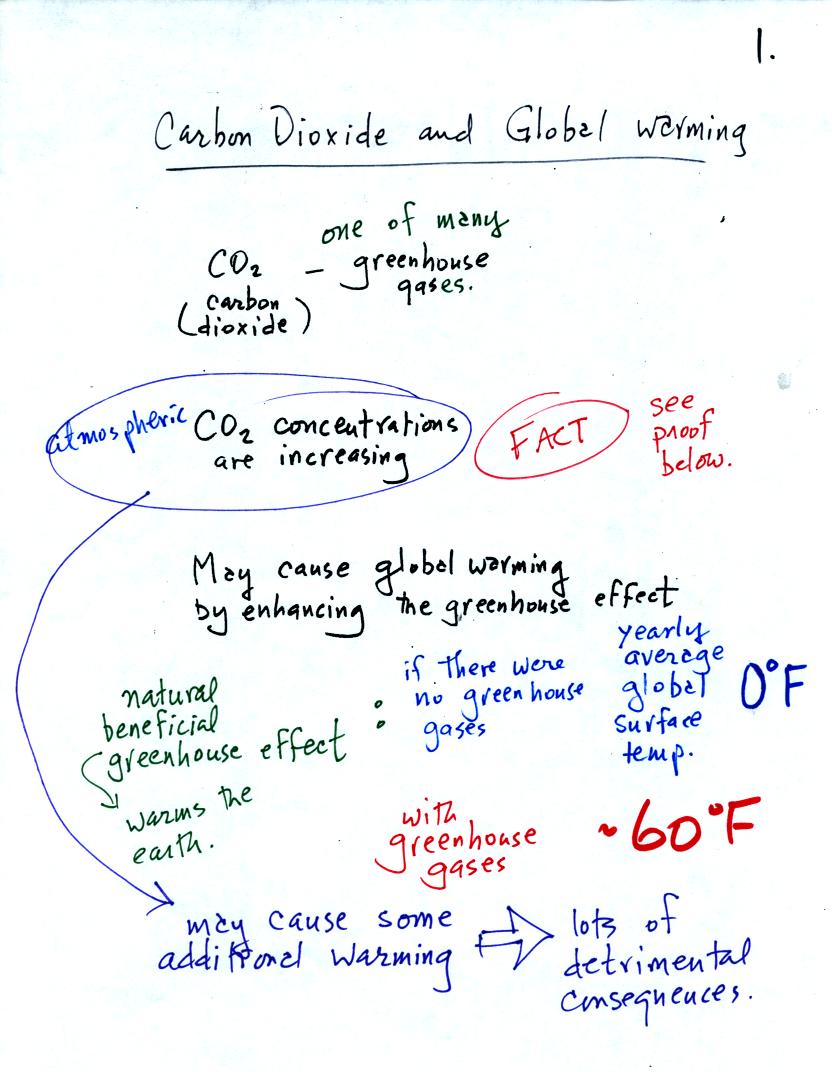 1.
Carbon Dioxide and Global warming
one of many
CO₂ – greenhouse
gases.
(carbon
dioxide)
atmospheric CO₂ concentrations
are increasing
FACT
see
proof
below.
May cause global warming
by enhancing the greenhouse effect
natural
beneficial
greenhouse effect :
warms the
earth.
if there were
no greenhouse
gases
yearly
average
global
surface
temp.
0°F
with
greenhouse
gases
~60°F
may cause some
additional warming
lots of
detrimental
consequences.